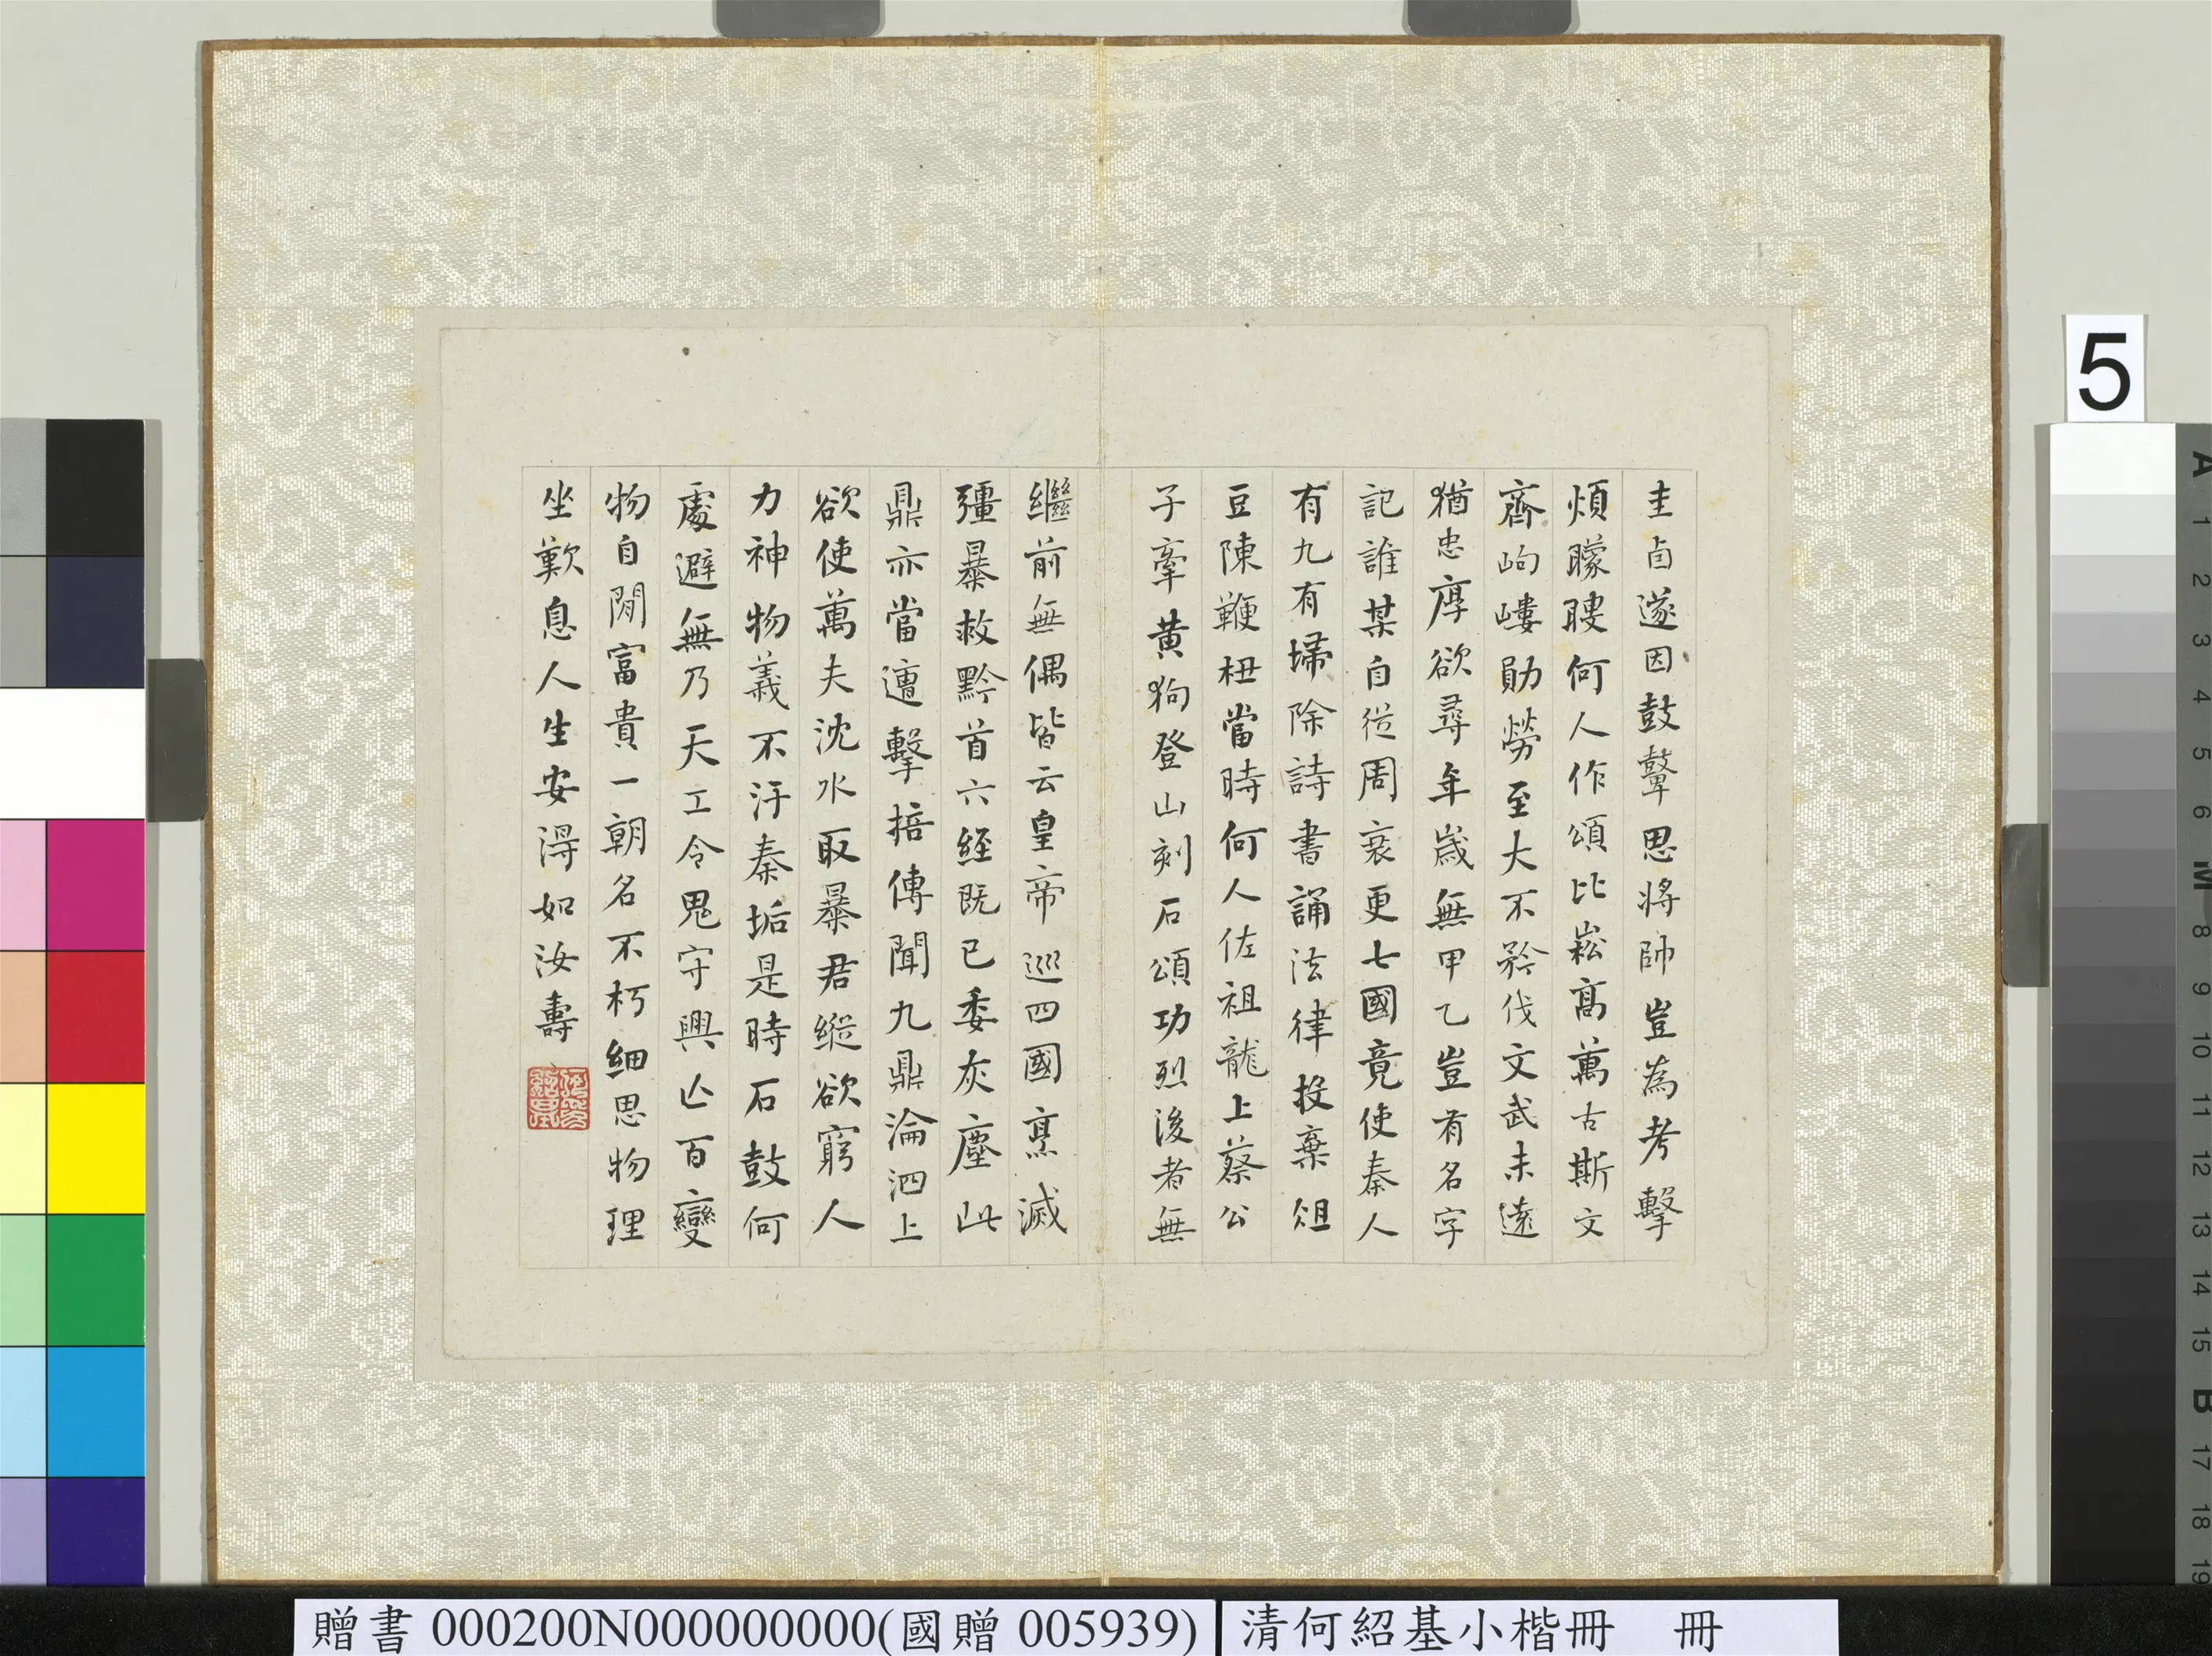 圭卣遂因鼓鼙思將帥豈為考擊
煩矇瞍何人作頌比崧高萬古斯文
齊岣嶁勛勞至大不矜伐文武未遠
猶忠厚欲尋年歲無甲乙豈有名字
記誰某自從周衰更七國竟使秦人
有九有掃除詩書誦法律投棄俎
豆陳鞭杻當時何人佐祖龍上蔡公
子牽黃狗登山刻石頌功烈後者無
繼前無偶皆云皇帝巡四國烹滅
彊暴救黔首六經既已委灰塵此
鼎亦當遭擊掊傳聞九鼎淪泗上
欲使萬夫沈水取暴君縱欲窮人
力神物義不汙秦垢是時石鼓何
處避無乃天工令鬼守興亡百變
物自閒富貴一朝名不朽細思物理
坐歎息人生安得如汝壽
5
贈書 000200N000000000(國贈 005939) 清何紹基小楷冊 冊
A 1 2 3 4 5 6 M 8 9 10 11 12 13 14 15 B 17 18 19